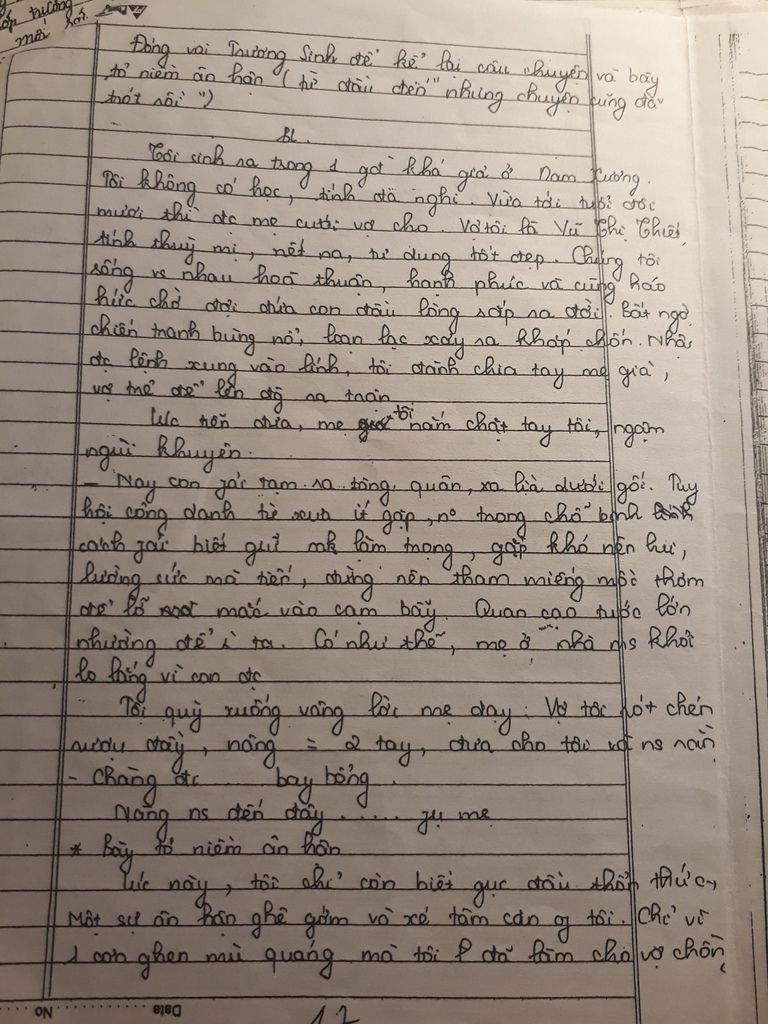 ớp trưởng
mới
Đóng vai Trương Sinh để kể lại câu chuyện và bày
tỏ niềm ân hận (từ đầu đến "nhưng chuyện cũng đã
trót rồi")
BL.
Tôi sinh ra trong 1 gđ khá giả ở Nam Xương.
Tôi không có học, tính đa nghi. Vừa tới tuổi đôi
mươi thì đc mẹ cưới vợ cho. Vợ tôi là Vũ Thị Thiết,
tính thuỳ mị, nết na, tư dung tốt đẹp. Chúng tôi
sống vs nhau hoà thuận, hạnh phúc và cùng háo
hức chờ đợi đứa con đầu lòng sắp ra đời. Bất ngờ
chiến tranh bùng nổ, loạn lạc xảy ra khắp chốn. Nhận
đc lệnh xung vào lính, tôi đành chia tay mẹ già,
vợ trẻ để lên đg ra trận
Lúc tiễn đưa, mẹ tôi nắm chặt tay tôi, ngậm
ngùi khuyên.
- Nay con fải tạm ra tòng quân, xa lìa dưới gối. Tuy
hội công danh từ xưa ít gặp, no trong chỗ binh
cách fải biết giữ mk làm trọng, gặp khó nên lui,
lường sức mà tiến, đừng nên tham miếng mồi thơm
để lỡ mắc vào cạm bẫy. Quan cao tước lớn
nhường để ng ta. Có như thế, mẹ ở nhà ms khỏi
lo lắng vì con đc
Tôi quỳ xuống vâng lời mẹ dạy. Vợ tôi rót chén
rượu đầy, nâng = 2 tay, đưa cho tôi và ns rằng
- Chàng đc ..... bay bổng.
Nàng ns đến đây ..... mẹ
* Bày tỏ niềm ân hận
Lúc này, tôi chỉ còn biết gục đầu thổn thức,
Một sự ân hận ghê gớm và xé tâm can tôi. Chỉ vì
1 cơn ghen mù quáng mà tôi đã làm cho vợ chồng
No
Date
17